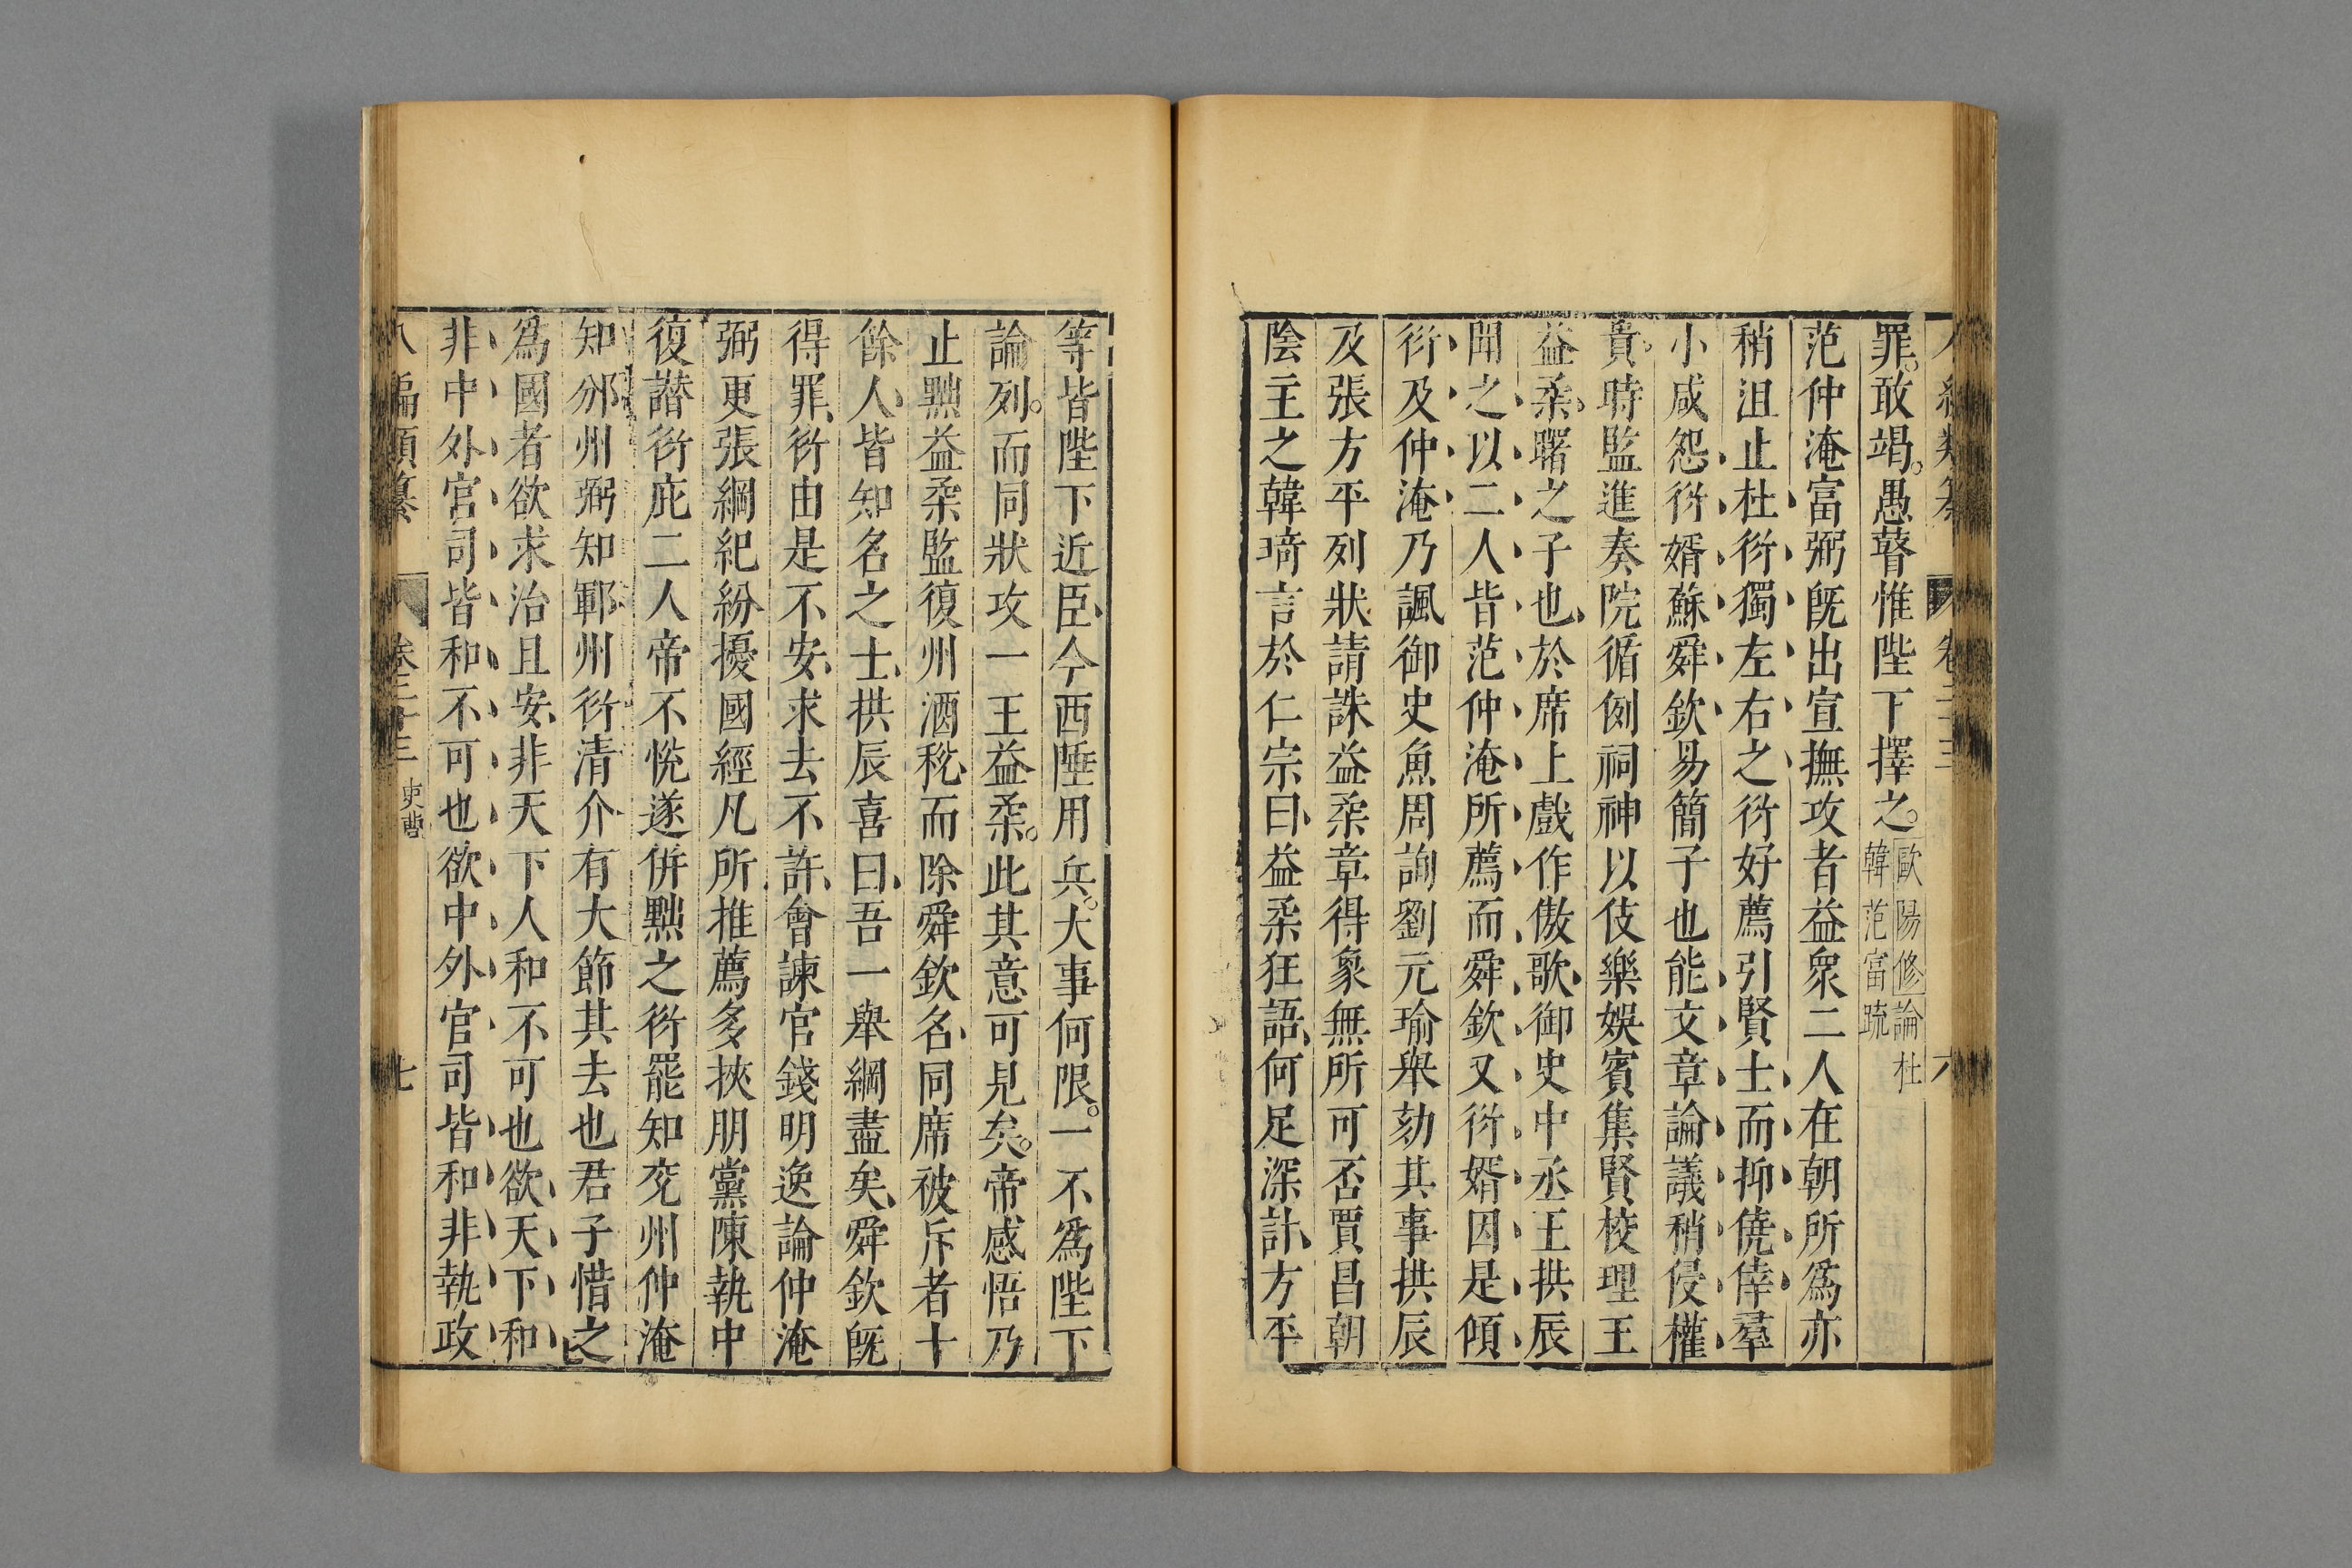 罪。敢竭。愚瞽惟陛下擇之。歐陽修論杜
韓范富疏
范仲淹富弼既出宣撫攻者益衆二人在朝所爲亦
稍沮止杜衍獨左右之衍好薦引賢士而抑僥倖羣
小咸怨衍婿蘇舜欽易簡子也能文章論議稍侵權
貴時監進奏院循例祠神以伎樂娛賓集賢校理王
益柔。曙之子也於席上戲作傲歌御史中丞王拱辰
聞之以二人皆范仲淹所薦而舜欽又衍婿因是傾
衍及仲淹乃諷御史魚周詢劉元瑜舉劾其事拱辰
及張方平列狀請誅益柔章得象無所可否賈昌朝
陰主之韓琦言於仁宗曰益柔狂語何足深計方平
等皆陛下近臣今西陲用兵。大事何限。一不爲陛下
論列。而同狀攻一王益柔。此其意可見矣。帝感悟乃
止黜益柔監復州酒稅而除舜欽名同席被斥者十
餘人皆知名之士拱辰喜曰吾一舉網盡矣舜欽既
得罪衍由是不安求去不許會諫官錢明逸論仲淹
弼更張綱紀紛擾國經凡所推薦多挾朋黨陳執中
復譖衍庇二人帝不悅遂併黜之衍罷知兗州仲淹
知邠州弼知鄆州衍清介有大節其去也君子惜之
爲國者欲求治且安非天下人和不可也欲天下和
非中外官司皆和不可也欲中外官司皆和非執政
八編類纂 卷二十三 史曹 七